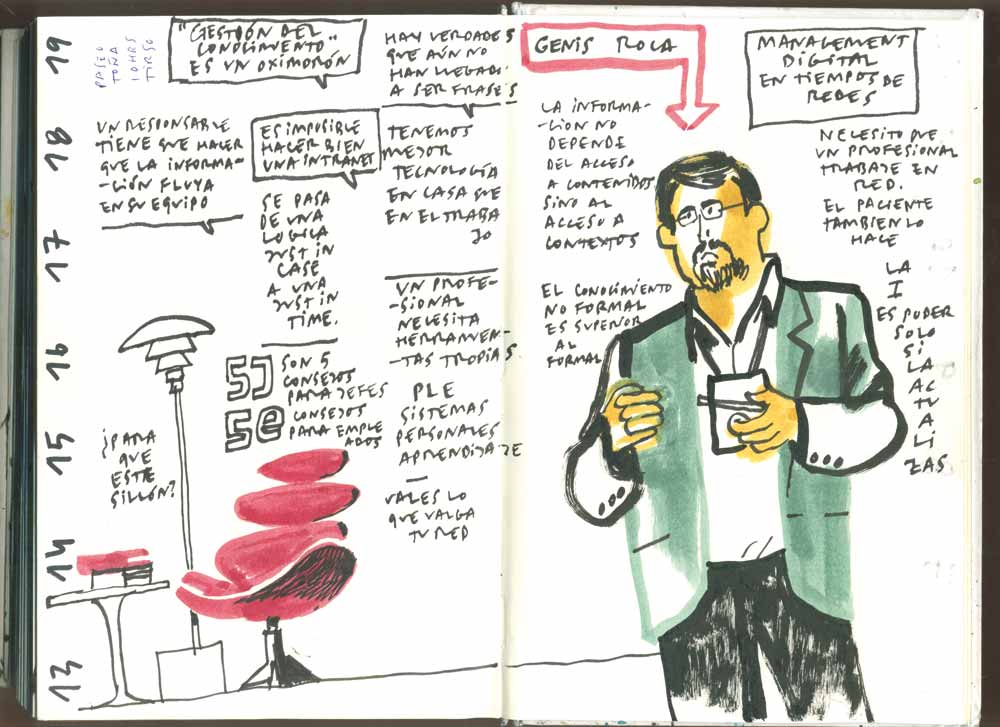 19
18
17
16
15
14
13
PASEO
TOÑA
10HRS
TIRSO
"GESTIÓN DEL
CONOCIMIENTO"
ES UN OXIMORÓN
HAY VERDADES
QUE AÚN NO
HAN LLEGADO
A SER FRASES
UN RESPONSABLE
TIENE QUE HACER
QUE LA INFORMA-
-CIÓN FLUYA
EN SU EQUIPO
ES IMPOSIBLE
HACER BIEN
UNA INTRANET
TENEMOS
MEJOR
TECNOLOGÍA
EN CASA QUE
EN EL TRABA
JO
SE PASA
DE UNA
LOGICA
JUST IN
CASE
A UNA
JUST IN
TIME.
UN PROFE-
-SIONAL
NECESITA
HERRAMIEN-
-TAS PROPIAS
5J SON 5
CONSEJOS
PARA JEFES
5e CONSEJOS
PARA EMPLE
ADOS
PLE
SISTEMAS
PERSONALES
APRENDIZAJE
—
VALES LO
QUE VALGA
TU RED
¿PARA
QUE
ESTE
SILLÓN?
GENIS ROCA
MANAGEMENT
DIGITAL
EN TIEMPOS DE
REDES
LA INFORMA-
-CION NO
DEPENDE
DEL ACCESO
A CONTENIDOS
SINO AL
ACCESO A
CONTEXTOS
EL CONOCIMIENTO
NO FORMAL
ES SUPERIOR
AL
FORMAL
NECESITO QUE
UN PROFESIONAL
TRABAJE EN
RED.
EL PACIENTE
TAMBIEN LO
HACE
LA
I
ES PODER
SOLO
SI
LA AC
TU
A
LI
ZAS